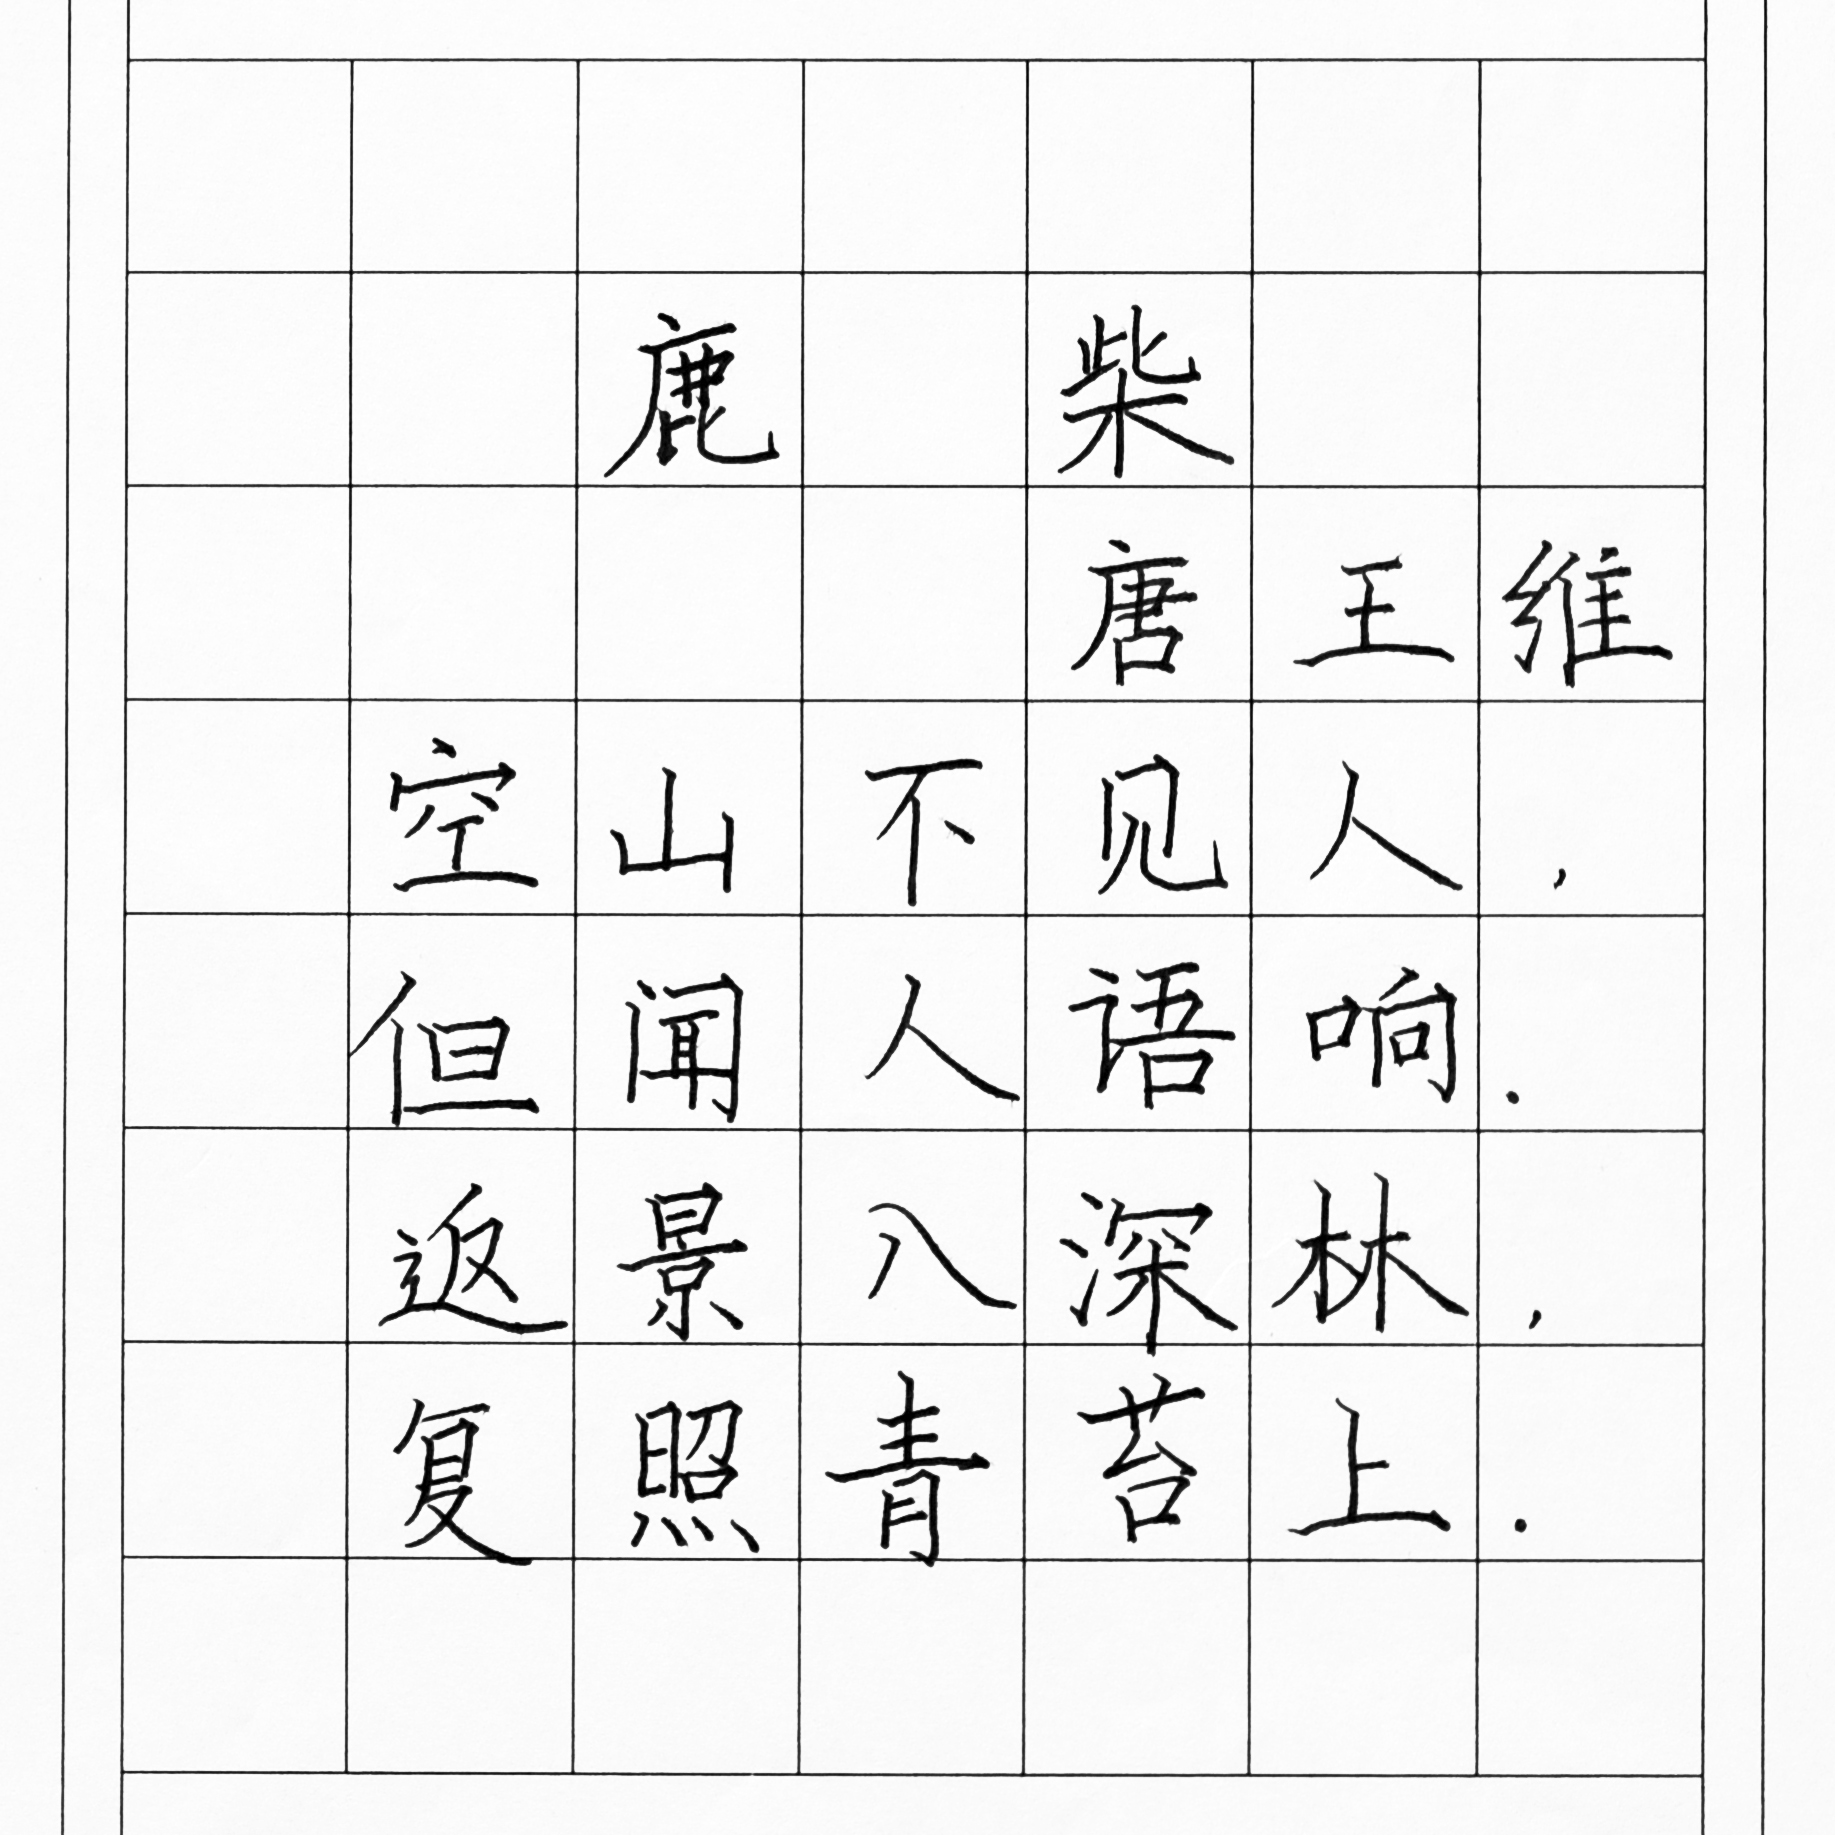 鹿柴
唐王维
空山不见人，
但闻人语响.
返景入深林，
复照青苔上.